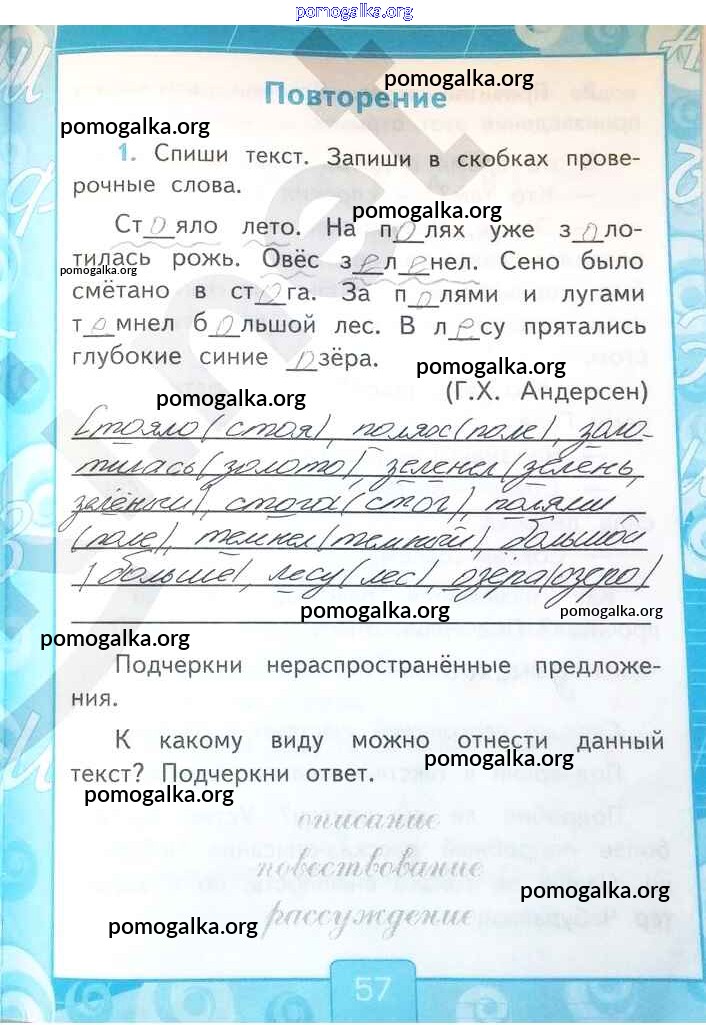 pomogalka.org
pomogalka.org
Повторение
pomogalka.org
1. Спиши текст. Запиши в скобках прове-
рочные слова.
pomogalka.org
Ст о яло лето. На п о лях уже з о ло-
pomogalka.org
тилась рожь. Овёс з е л е нел. Сено было
сметано в ст о га. За п о лями и лугами
т е мнел б о льшой лес. В л е су прятались
глубокие синие о зёра.
pomogalka.org
(Г.Х. Андерсен)
pomogalka.org
Стояло (стоя), полях (поле), золо-
тилась (золото), зеленел (зелень,
зелёный), стога (стог), полями
(поле), темнел (темный), большой
(больше), лесу (лес) озёра (озеро)
pomogalka.org
pomogalka.org
pomogalka.org
Подчеркни нераспространённые предложе-
ния.
К какому виду можно отнести данный
pomogalka.org
текст? Подчеркни ответ.
pomogalka.org
описание
повествование
pomogalka.org
рассуждение
pomogalka.org
57